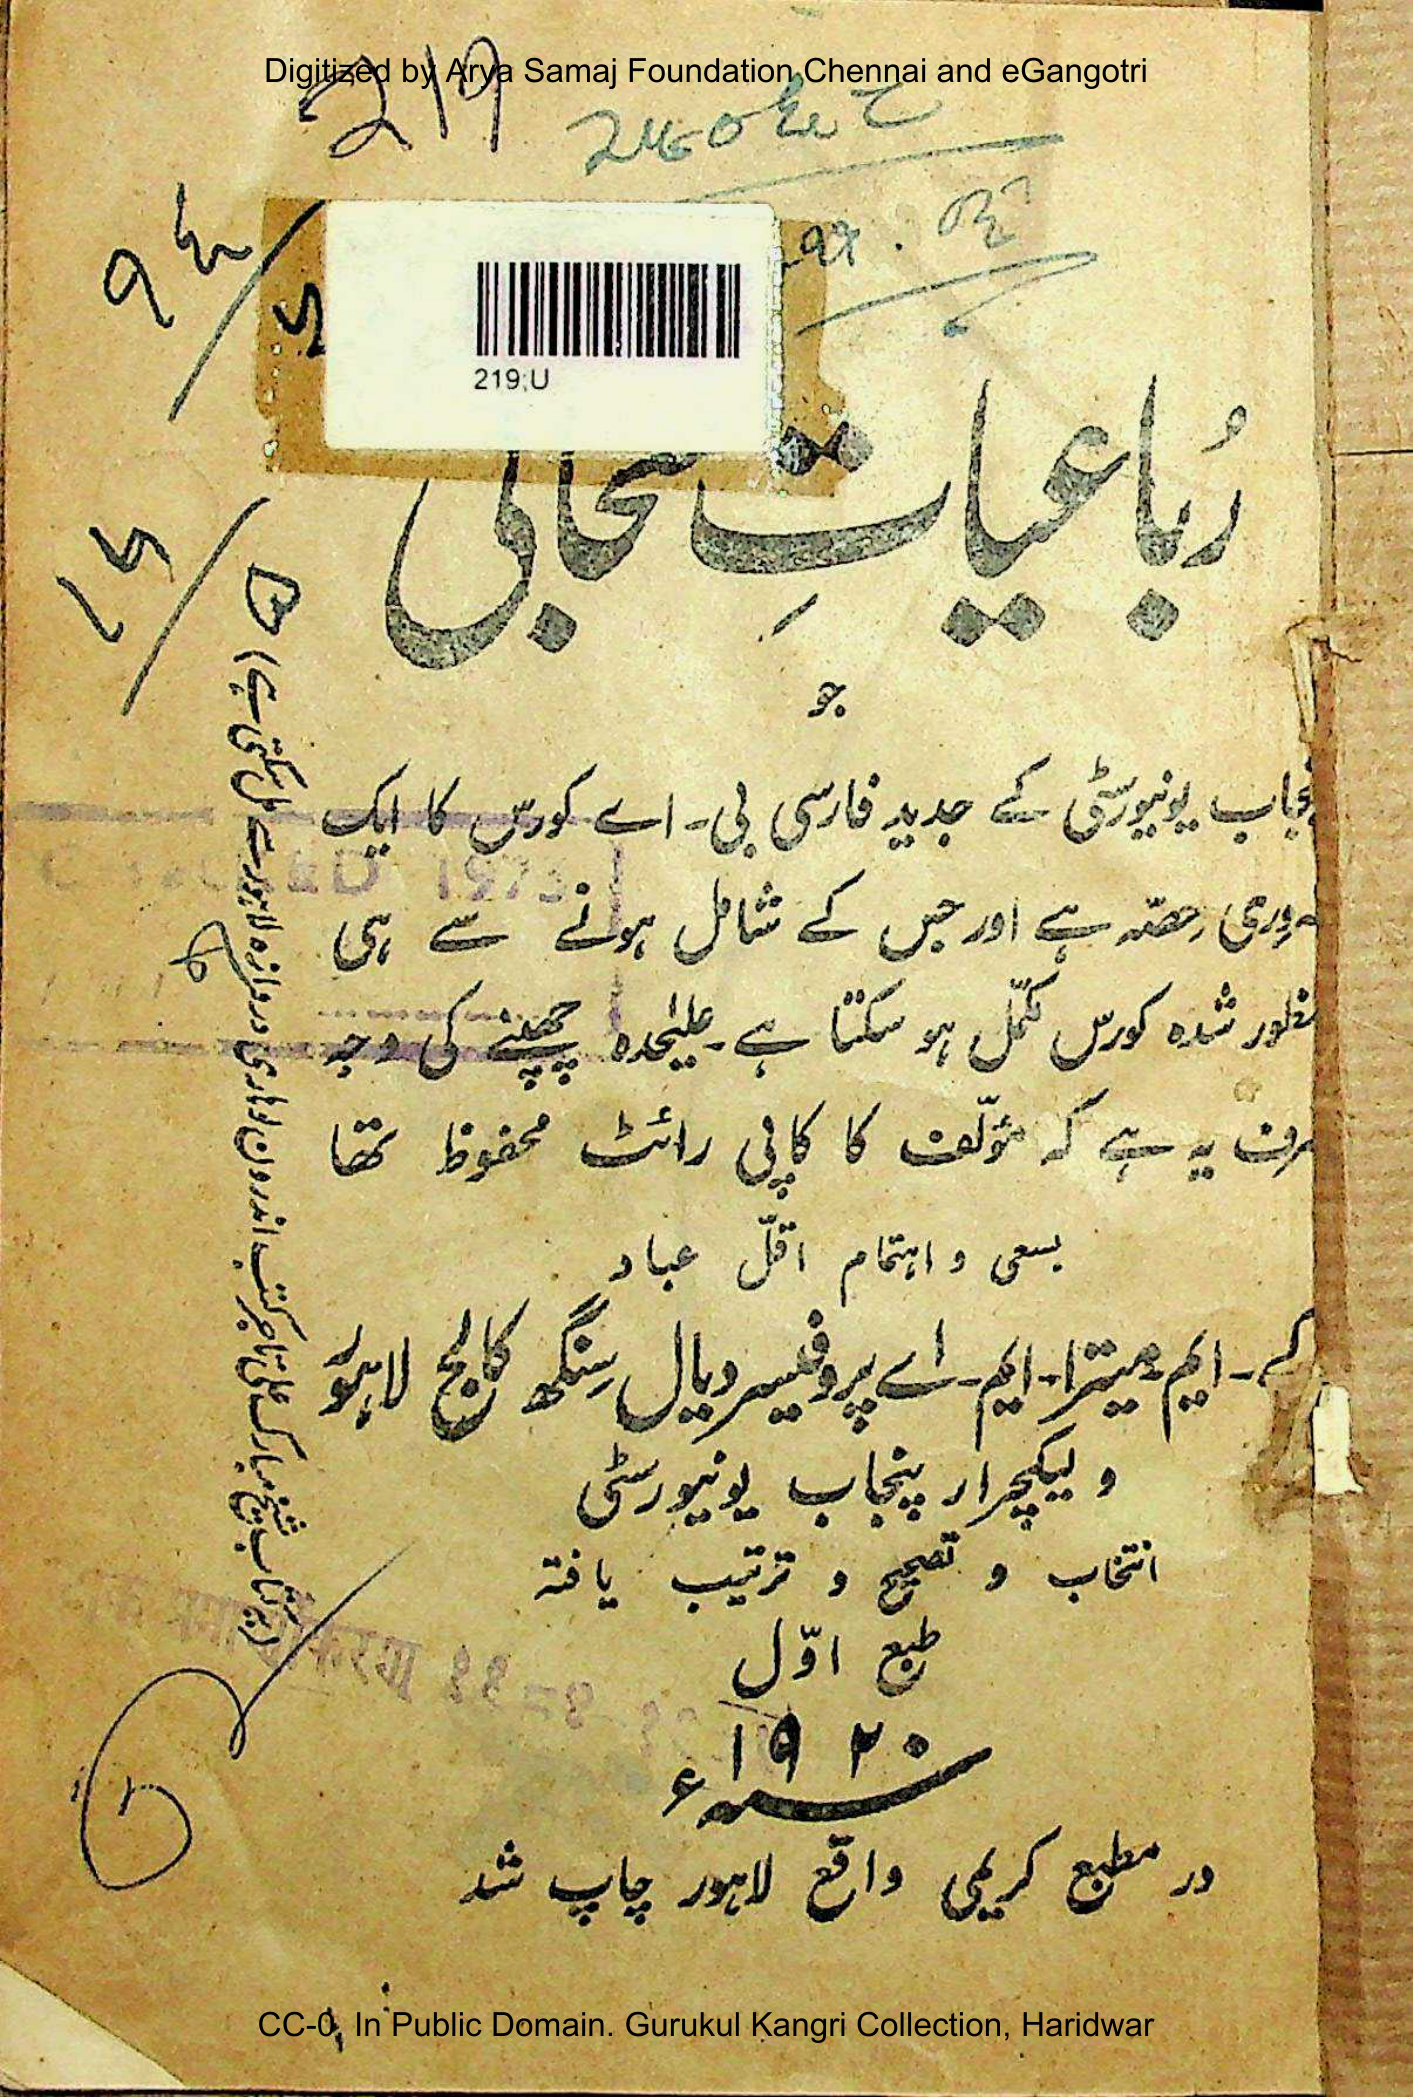 Digitized by Arya Samaj Foundation Chennai and eGangotri
219
219;U
رُباعیاتِ سحابی
جو
پنجاب یونیورسٹی کے جدید فارسی بی۔ اے کورس کا ایک
وری حصّہ ہے اور جس کے شامل ہونے سے ہی
منظور شدہ کورس مکمّل ہو سکتا ہے۔ علیٰحدہ چھپنے کی وجہ
صرف یہ ہے کہ مؤلّف کا کاپی رائٹ محفوظ تھا
بسعی و اہتمام اقلّ عباد
کے۔ ایم۔ میترا۔ ایم۔ اے پروفیسر دیال سنگھ کالج لاہور
و لیکچرار پنجاب یونیورسٹی
انتخاب و تصحیح و ترتیب یافتہ
طبع اوّل
سنہ ۱۹۲۰ء
در مطبع کریمی واقع لاہور چاپ شد
(یہ کتاب شیخ مبارک علی تاجر کتب اندرون لوہاری دروازہ لاہور سے مل سکتی ہے)
CC-0. In Public Domain. Gurukul Kangri Collection, Haridwar